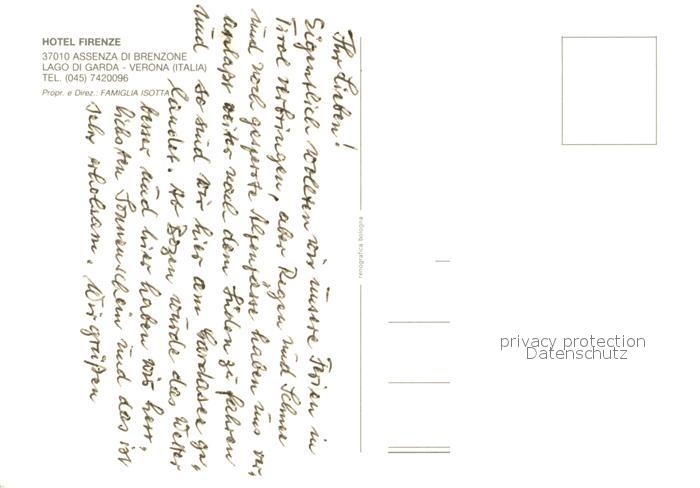 HOTEL FIRENZE
37010 ASSENZA DI BRENZONE
LAGO DI GARDA - VERONA (ITALIA)
TEL. (045) 7420096
Propr. e Direz.: FAMIGLIA ISOTTA
Ihr Lieben!
Eigentlich wollten wir unsere Ferien in
Tirol verbringen, aber Regen und Schnee
und noch gesperrte Alpenpässe haben uns ver-
anlaßt weiter nach dem Süden zu fahren
und so sind wir hier am Gardasee ge-
landet. Ab Bozen wurde das Wetter
besser und hier haben wir herr-
lichsten Sonnenschein und das ist
sehr erholsam. Wir grüßen
renografica bologna
privacy protection
Datenschutz